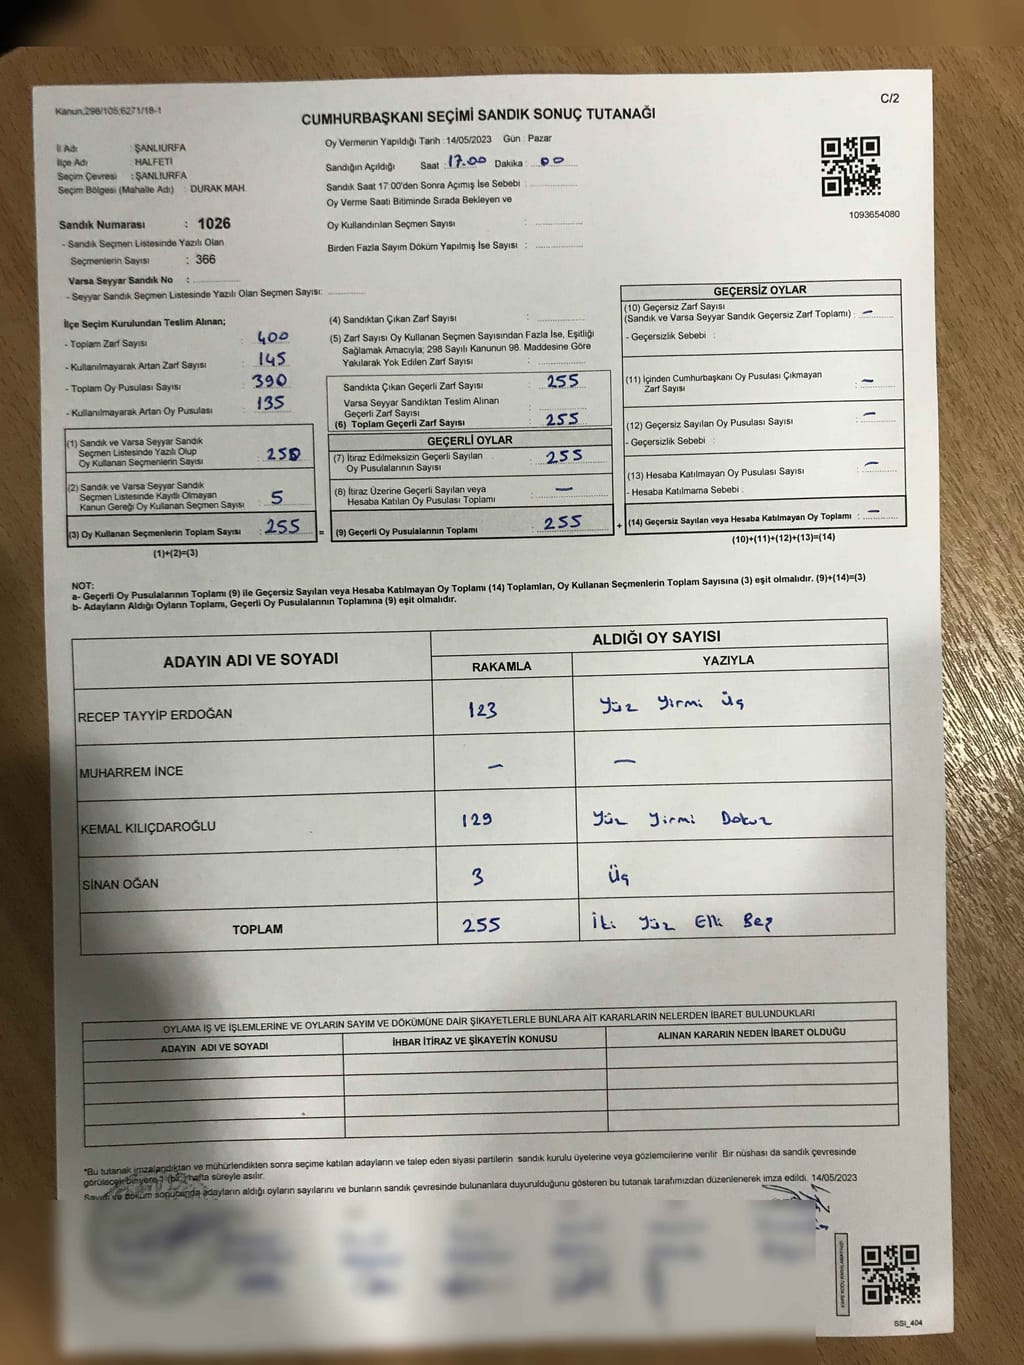 Kanun:298/105;6271/18-1
C/2
CUMHURBAŞKANI SEÇİMİ SANDIK SONUÇ TUTANAĞI
İl Adı : ŞANLIURFA
İlçe Adı : HALFETİ
Seçim Çevresi : ŞANLIURFA
Seçim Bölgesi (Mahalle Adı) : DURAK MAH.
Oy Vermenin Yapıldığı Tarih : 14/05/2023 Gün : Pazar
Sandığın Açıldığı Saat : 17.00 Dakika : 00
Sandık Saat 17:00'den Sonra Açımış İse Sebebi :
Oy Verme Saati Bitiminde Sırada Bekleyen ve
Oy Kullandırılan Seçmen Sayısı :
Birden Fazla Sayım Döküm Yapılmış İse Sayısı :
1093654080
Sandık Numarası : 1026
- Sandık Seçmen Listesinde Yazılı Olan
Seçmenlerin Sayısı : 366
Varsa Seyyar Sandık No :
- Seyyar Sandık Seçmen Listesinde Yazılı Olan Seçmen Sayısı:
İlçe Seçim Kurulundan Teslim Alınan;
- Toplam Zarf Sayısı : 400
- Kullanılmayarak Artan Zarf Sayısı : 145
- Toplam Oy Pusulası Sayısı : 390
- Kullanılmayarak Artan Oy Pusulası : 135
(1) Sandık ve Varsa Seyyar Sandık
Seçmen Listesinde Yazılı Olup
Oy Kullanan Seçmenlerin Sayısı : 250
(2) Sandık ve Varsa Seyyar Sandık
Seçmen Listesinde Kayıtlı Olmayan
Kanun Gereği Oy Kullanan Seçmen Sayısı : 5
(3) Oy Kullanan Seçmenlerin Toplam Sayısı : 255 =
(1)+(2)=(3)
(4) Sandıktan Çıkan Zarf Sayısı :
(5) Zarf Sayısı Oy Kullanan Seçmen Sayısından Fazla İse, Eşitliği
Sağlamak Amacıyla; 298 Sayılı Kanunun 98. Maddesine Göre
Yakılarak Yok Edilen Zarf Sayısı :
Sandıkta Çıkan Geçerli Zarf Sayısı : 255
Varsa Seyyar Sandıktan Teslim Alınan
Geçerli Zarf Sayısı :
(6) Toplam Geçerli Zarf Sayısı : 255
GEÇERLİ OYLAR
(7) İtiraz Edilmeksizin Geçerli Sayılan
Oy Pusulalarının Sayısı : 255
(8) İtiraz Üzerine Geçerli Sayılan veya
Hesaba Katılan Oy Pusulası Toplamı : —
(9) Geçerli Oy Pusulalarının Toplamı : 255 +
GEÇERSİZ OYLAR
(10) Geçersiz Zarf Sayısı
(Sandık ve Varsa Seyyar Sandık Geçersiz Zarf Toplamı) : —
- Geçersizlik Sebebi :
(11) İçinden Cumhurbaşkanı Oy Pusulası Çıkmayan
Zarf Sayısı : —
(12) Geçersiz Sayılan Oy Pusulası Sayısı : —
- Geçersizlik Sebebi :
(13) Hesaba Katılmayan Oy Pusulası Sayısı : —
- Hesaba Katılmama Sebebi :
(14) Geçersiz Sayılan veya Hesaba Katılmayan Oy Toplamı : —
(10)+(11)+(12)+(13)=(14)
NOT:
a- Geçerli Oy Pusulalarının Toplamı (9) ile Geçersiz Sayılan veya Hesaba Katılmayan Oy Toplamı (14) Toplamları, Oy Kullanan Seçmenlerin Toplam Sayısına (3) eşit olmalıdır. (9)+(14)=(3)
b- Adayların Aldığı Oyların Toplamı, Geçerli Oy Pusulalarının Toplamına (9) eşit olmalıdır.
ADAYIN ADI VE SOYADI
ALDIĞI OY SAYISI
RAKAMLA YAZIYLA
RECEP TAYYİP ERDOĞAN 123 Yüz Yirmi Üç
MUHARREM İNCE — —
KEMAL KILIÇDAROĞLU 129 Yüz Yirmi Dokuz
SİNAN OĞAN 3 Üç
TOPLAM 255 İki Yüz Elli Beş
OYLAMA İŞ VE İŞLEMLERİNE VE OYLARIN SAYIM VE DÖKÜMÜNE DAİR ŞİKAYETLERLE BUNLARA AİT KARARLARIN NELERDEN İBARET BULUNDUKLARI
ADAYIN ADI VE SOYADI İHBAR İTİRAZ VE ŞİKAYETİN KONUSU ALINAN KARARIN NEDEN İBARET OLDUĞU
*Bu tutanak imzalandıktan ve mühürlendikten sonra seçime katılan adayların ve talep eden siyasi partilerin sandık kurulu üyelerine veya gözlemcilerine verilir. Bir nüshası da sandık çevresinde
görülecek bir yere 1 (bir) hafta süreyle asılır.
Sayım ve döküm sonucunda adayların aldığı oyların sayılarını ve bunların sandık çevresinde bulunanlara duyurulduğunu gösteren bu tutanak tarafımızdan düzenlenerek imza edildi. 14/05/2023
SSI_404